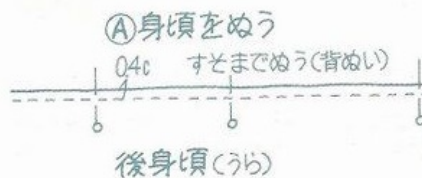 Ⓐ身頃をぬう
0.4c すそまでぬう(背ぬい)
後身頃(うら)